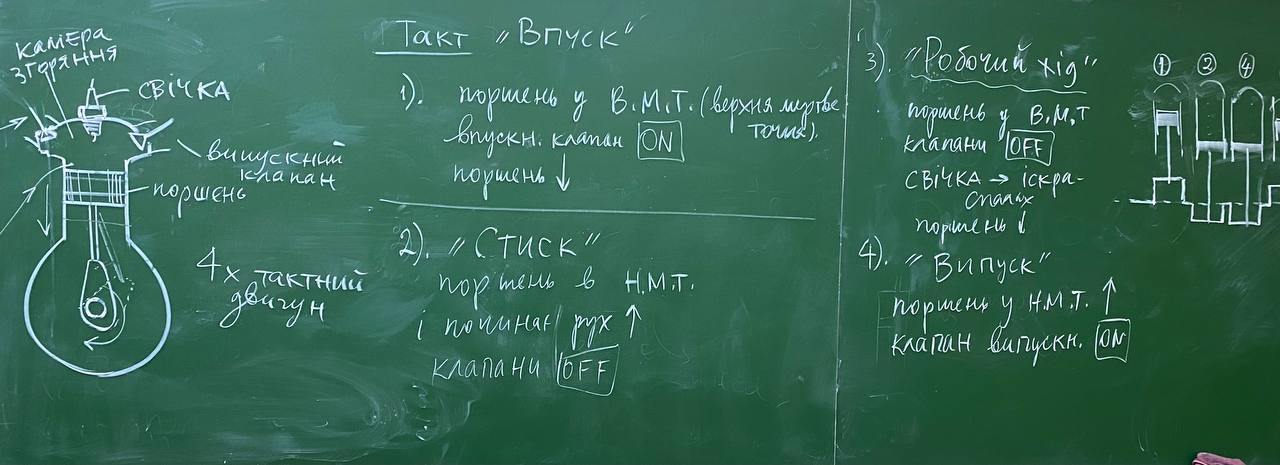 камера
згоряння
свічка
випускний
клапан
поршень
4х тактний
двигун
Такт „Впуск“
1). поршень у В.М.Т. (верхня мертве
точка).
впускн. клапан ON
поршень ↓
2). „Стиск“
поршень в Н.М.Т.
і починає рух ↑
клапани OFF
3). „Робочий хід“
поршень у В.М.Т
клапани OFF
свічка → іскра-
спалах
поршень ↓
4). „Випуск“
поршень у Н.М.Т. ↑
клапан випускн. ON
1 2 4